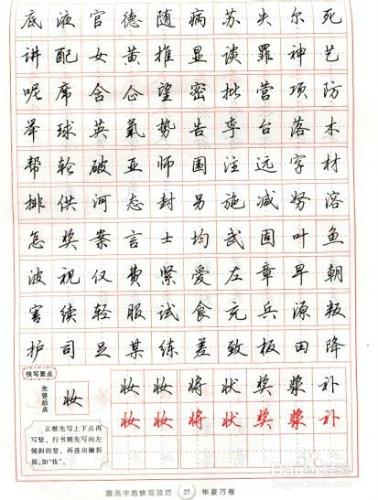 底液官德随病苏失尔死
讲配女黄推显谈罪神艺
呢席含企望密批营项防
举球英氧势告李台落木
帮轮破亚师国注远字材
排供河态封另施减努溶
怎奖案言士均武固叶鱼
波视仅费紧爱左章早朝
害续轻服试食元兵源叛
护司足某练差致板田降
快写要点
先竖后点
妆
妆妆将状奖浆补
妆妆将状奖浆补
正楷先写上下点再
写竖，行书则先写向左
倾斜的竖，再连出撇折
提，如“妆”。
27 华夏万卷